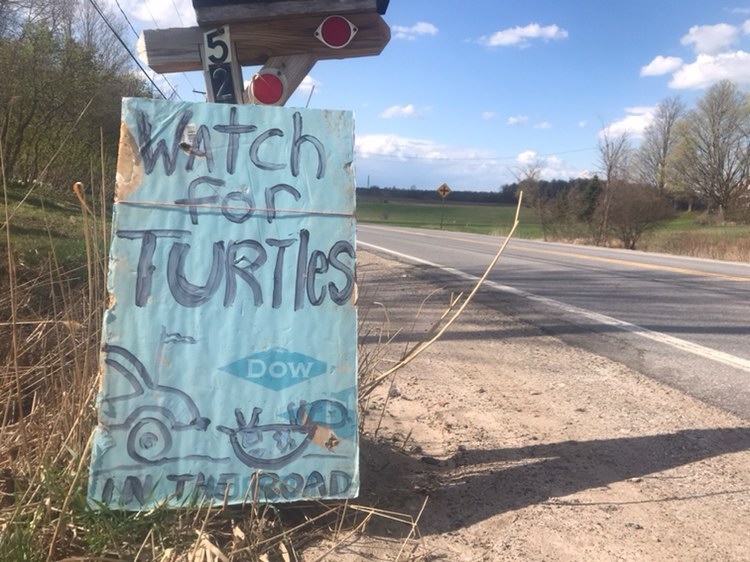 5
2
Watch
for
TURTles
Dow
IN THE ROAD